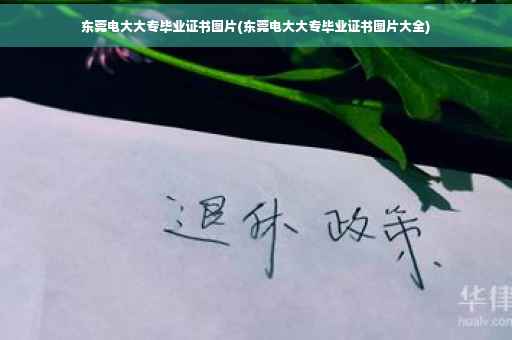 东莞电大大专毕业证书图片(东莞电大大专毕业证书图片大全)
退休 政策
华律
hualv.com